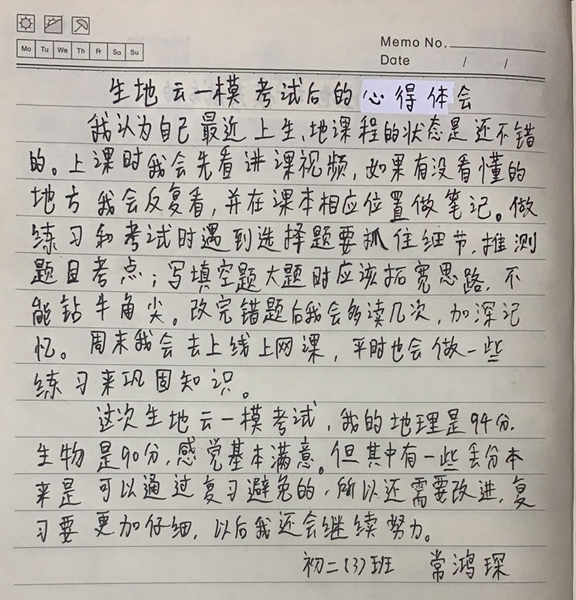 Mo Tu We Th Fr Sa Su
Memo No.
Date / /
生地云一模考试后的心得体会
我认为自己最近上生、地课程的状态是还不错
的。上课时我会先看讲课视频，如果有没看懂的
地方我会反复看，并在课本相应位置做笔记。做
练习和考试时遇到选择题要抓住细节，推测
题目考点；写填空题大题时应该拓宽思路，不
能钻牛角尖。改完错题后我会多读几次，加深记
忆。周末我会去上线上网课，平时也会做一些
练习来巩固知识。
这次生地云一模考试，我的地理是94分，
生物是90分，感觉基本满意。但其中有一些丢分本
来是可以通过复习避免的，所以还需要改进，复
习要更加仔细，以后我还会继续努力。
初二（3）班 常鸿琛